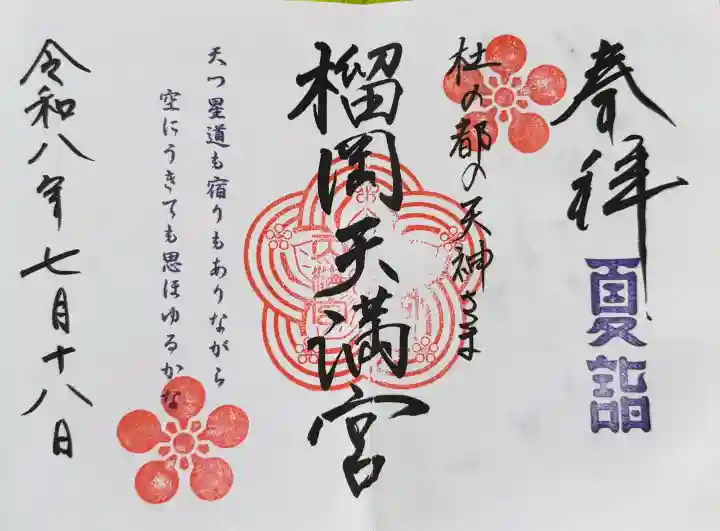 奉拝
夏詣
杜の都の天神さま
榴岡天満宮
天つ星道も宿りもありながら
空にうきても思ほゆるかな
令和八年七月十八日